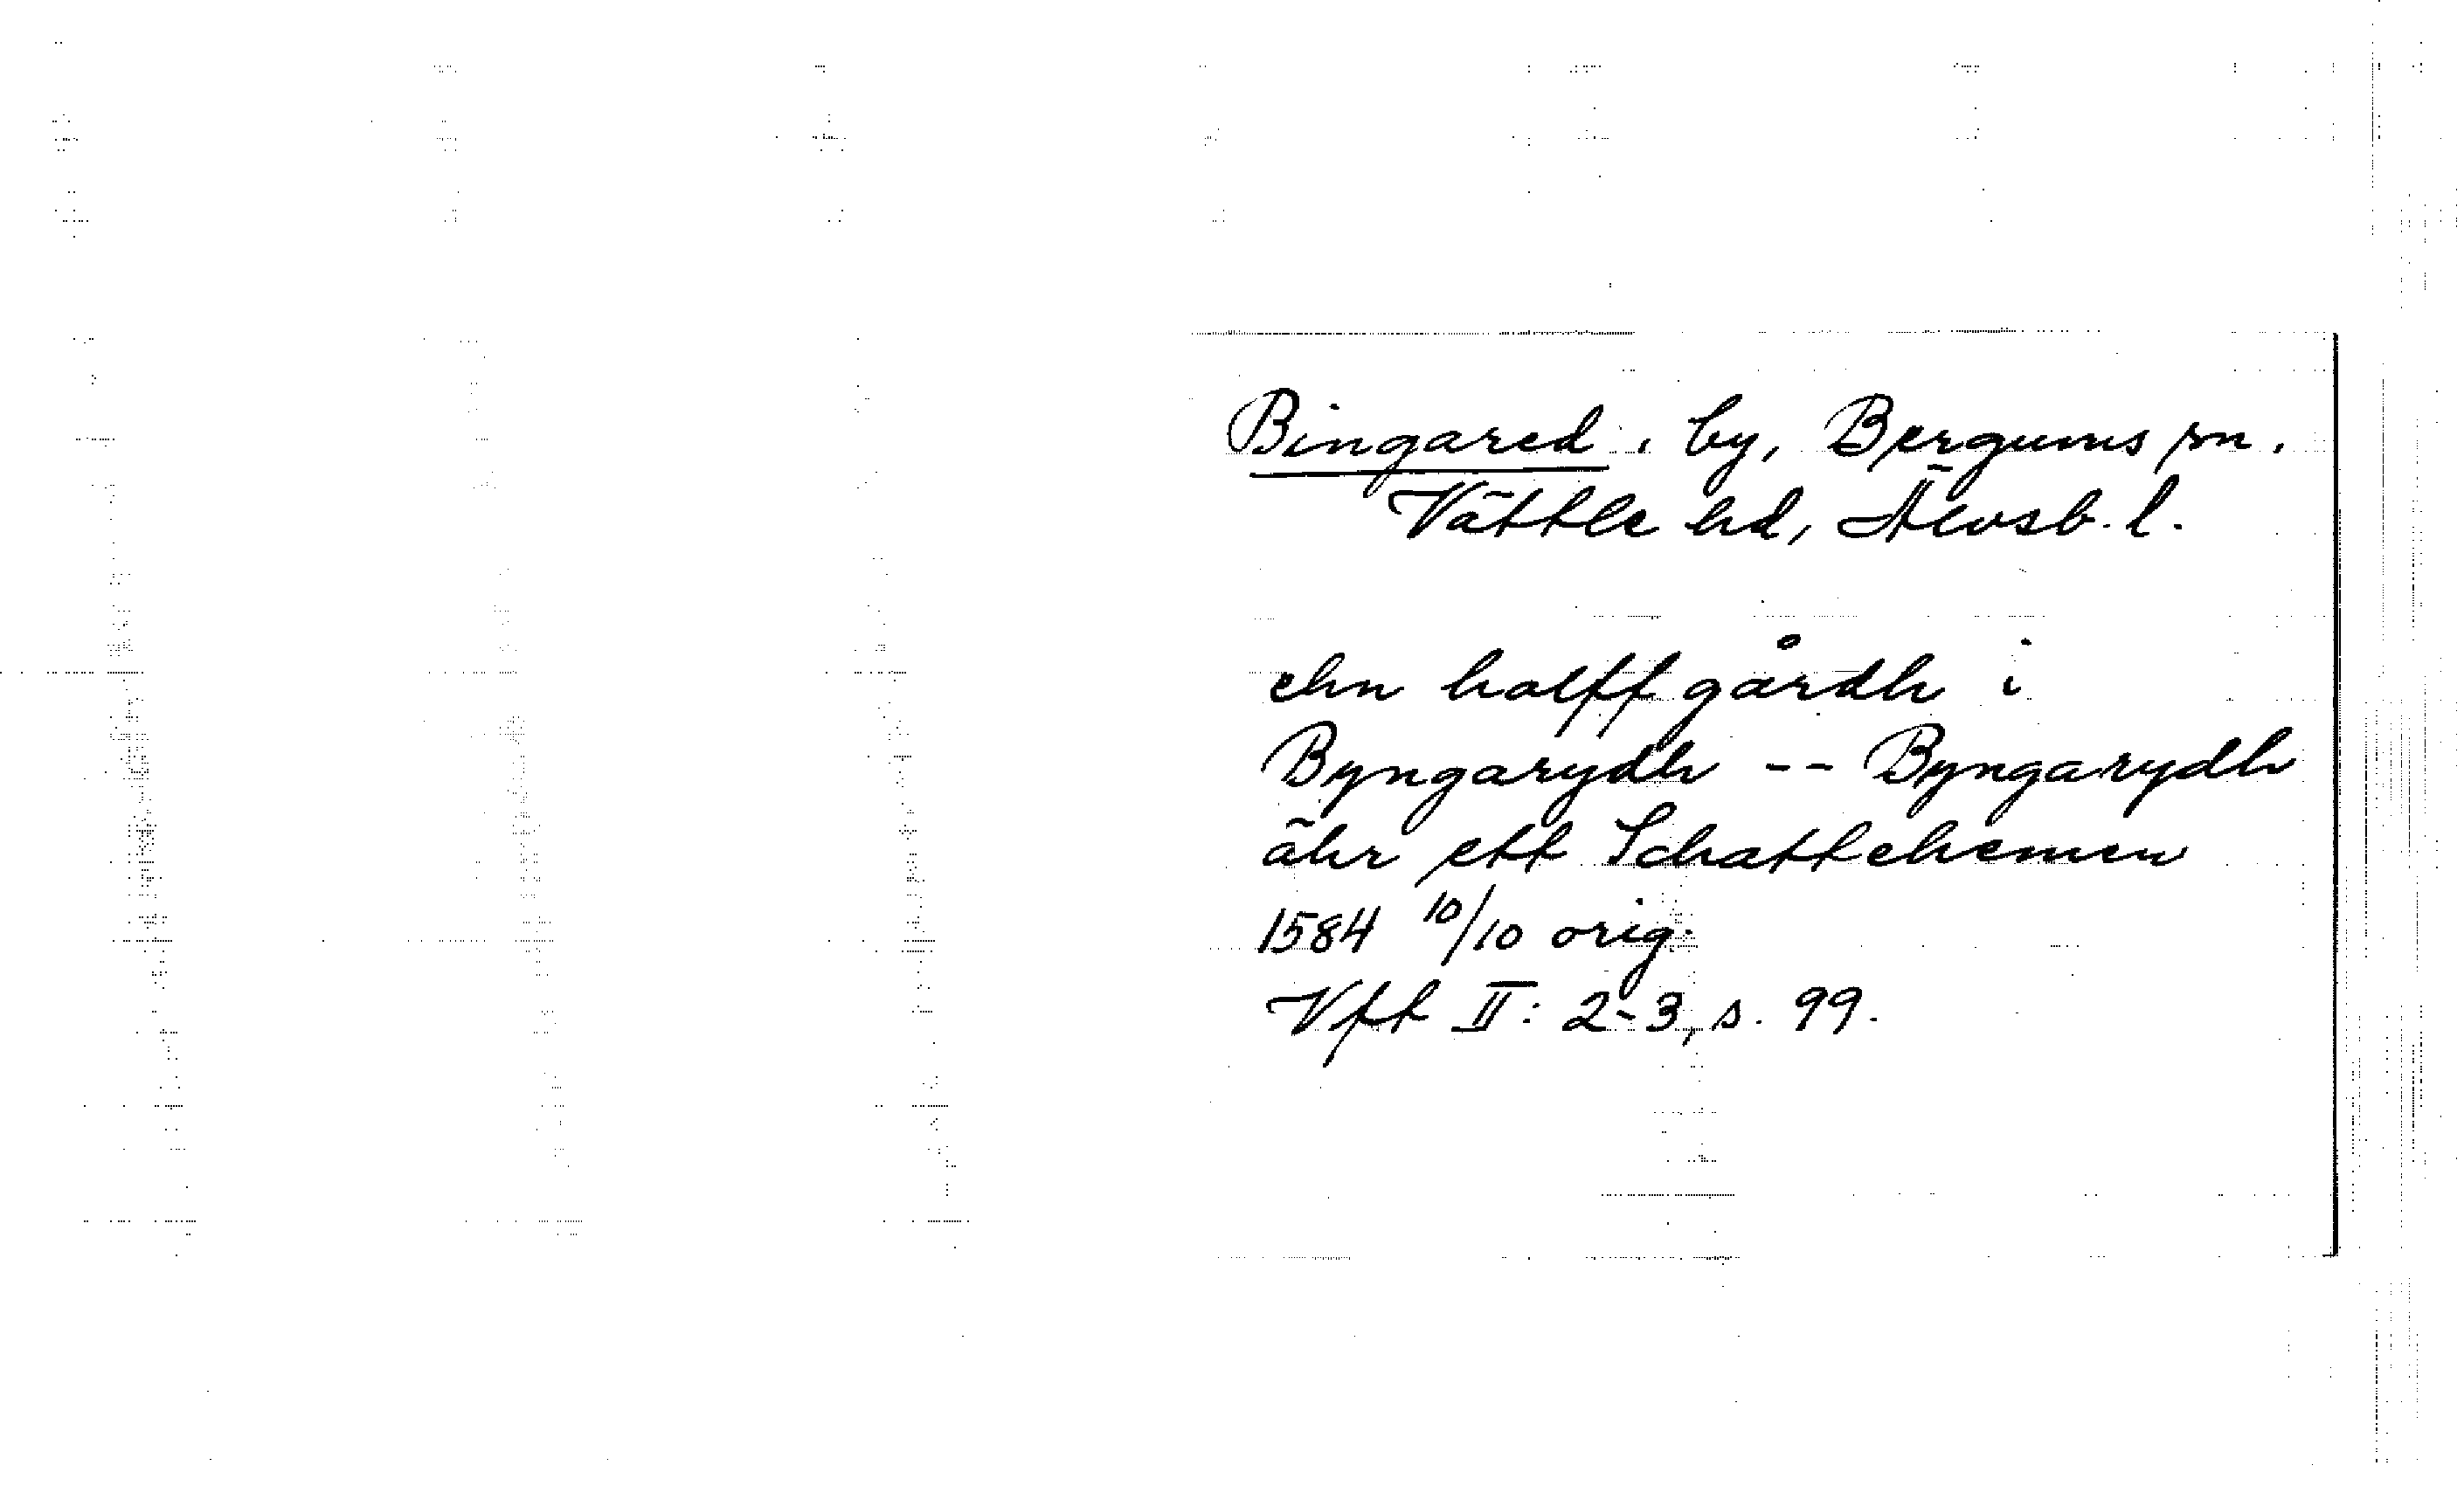 Bingared, by, Bergums sn.
Vättle hd, Älvsb. l.
ehn halff gårdh i
Byngarydh -- Byngarydh
ähr ett Schattehemen
1584 10/10 orig.
Vft II: 2-3, s. 99.